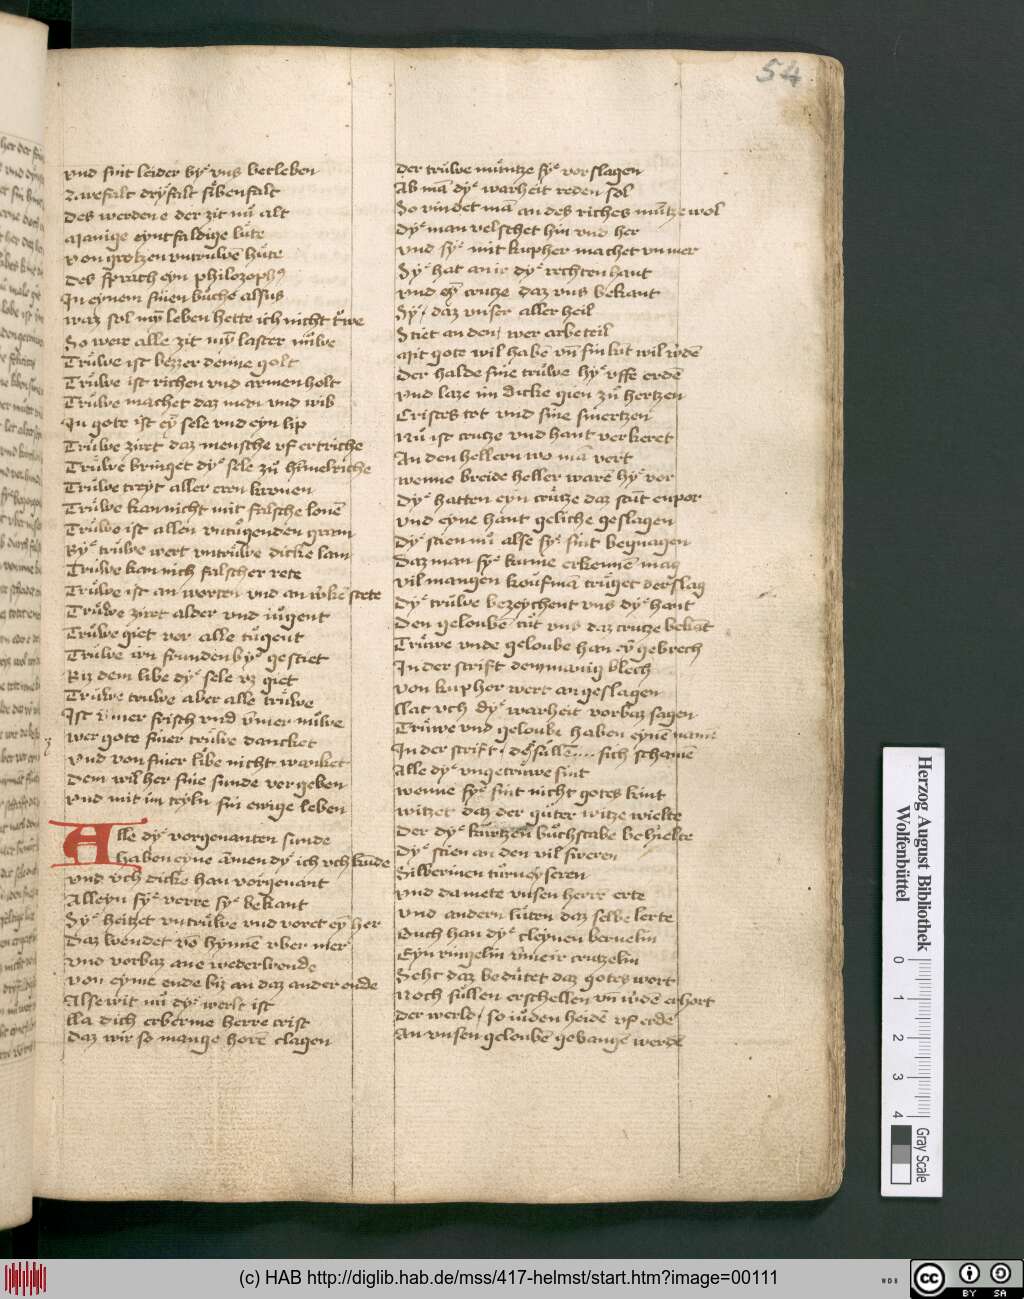 54
vnd sint leider by vns becleben
Zwefalt dryfalt sibenfalt
Des werden e der zit nů alt
Manige eyntfaldige lute
von grotzen vntruwen hute
Des sprach eyn philozophus
In eynem sinen buche alsus
waz sol myn leben hette ich nicht truwe
So were alle zit myn laster nuwe
Truwe ist bezzer denne golt
Truwe ist richen vnd armen holt
Truwe machet daz man vnd wib
In gote ist eyn sele vnd eyn lip
Truwe ziret daz mensche vf ertriche
Truwe bringet dye sele zů himelriche
Truwe treyt aller eren kronen
Truwe kan nicht mit falsche lonen
Truwe ist allen vntugenden gram
By truwe wert vntruwe dicke lam
Truwe kan nich falscher rete
Truwe ist an worten vnd an werken stete
Truwe ziret alder vnd iugent
Truwe giet vor alle tugent
Truwe irn frunden by gestiet
Biz dem libe dye sele vz giet
Truwe truwe aber alle truwe
Ist ymer frisch vnd ymer nuwe
wer gote siner truwe dancket
vnd von siner libe nicht wancket
Dem wil her sine sunde vergeben
vnd mit im teyln sin ewige leben
Alle dye vorgenanten sunde
haben eyne amen dye ich vch kunde
vnd vch dicke han vorgenant
Alleyn sye verre sye bekant
Sye heitzet vntruwe vnd voret eyn her
Daz wendet von hynnen vber mer
vnd vorbaz ane wederwende
von eyme ende biz an daz ander ende
Alse wit nů dye werlt ist
lla dich erberme herre crist
Daz wir so mange horen clagen
der truwe muntze sye vorslagen
Ab man dye warheit reden sol
So vindet man an des riches muntze wol
dye man velschet hin vnd her
vnd sye mit kupher machet vnmer
Sye hat an ir dye rechten hant
vnd eyn cruze daz vns bekant
Sy / daz vnser aller heil
Stiet an den / wer arbeteil
Mit gote wil haben vnd sin kint wil werden
Der halde sine truwe hye vffe erden
vnd laze im dicke gien zů hertzen
Cristes tot vnd sine smertzen
Nů ist cruce vnd hant verkeret
An den hellern wo ma vert
wenne breide heller waren hye vor
Dye hatten eyn crutze daz stunt enpor
vnd eyne hant geliche geslagen
Dye stien nů alse sye sint begnagen
Daz man sye kume erkennen mag
vil mangen koufman truget der slag
Dye truwe bezeychent vns dye hant
Den gelouben tut vns daz crutze bekant
Truwe vnde geloube han eyn gebrech
In der scrift dem manig blech
von kupher wert an geslagen
llat vch dye warheit vorbaz sagen
Truwe vnd geloube haben eynen name
In der scrift / des sullen .... sich schamen
Alle dye vngetruwe sint
wenne sye sint nicht gotes kint
witzet daz der guter witze wielte
Der dye kurtzen buchstabe behielte
Dye stien an den vil sweren
Silberinen turneyseren
vnd da mete vnsen herre erte
vnd andern luten daz selbe lerte
Ouch han dye cleynen bernelin
Eyn ringelin vmeir crutzelin
Seht daz bedutet daz gotes wort
Noch sullen erschellen vnd werden erhort
Der werld / so iuden heiden vf erde
An vnsen gelouben gevangen werde
Herzog August Bibliothek
Wolfenbüttel
0 1 2 3 4
Gray Scale
(c) HAB http://diglib.hab.de/mss/417-helmst/start.htm?image=00111
WDB
cc BY SA